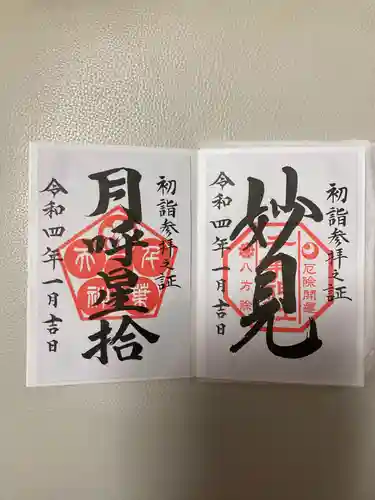 初詣参拝之証
月呼星拾
令和四年一月吉日
初詣参拝之証
妙見
厄除開運
八方除
令和四年一月吉日